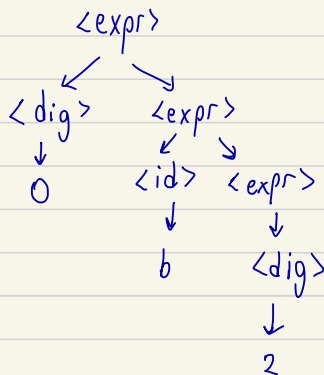 <expr>
<dig> <expr>
0 <id> <expr>
b <dig>
2